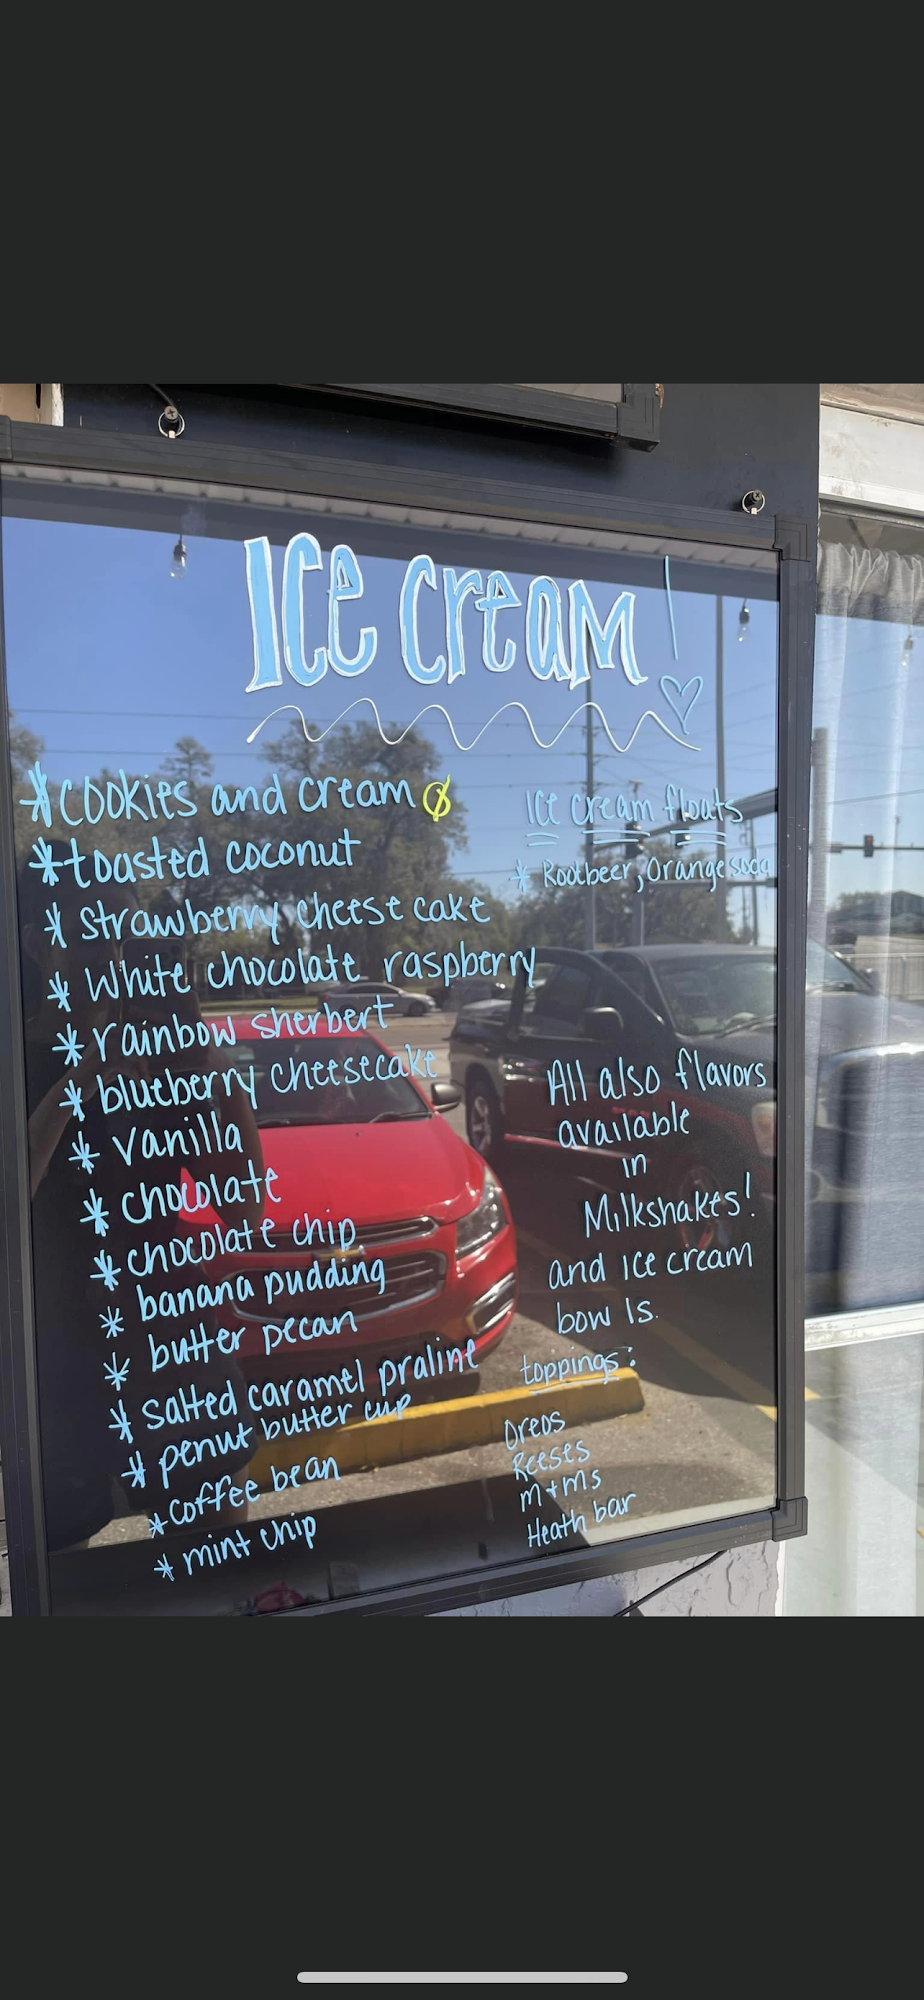 Ice cream!
*cookies and cream
*toasted coconut
* strawberry cheese cake
* White chocolate raspberry
* rainbow sherbert
* blueberry cheesecake
* vanilla
* chocolate
* chocolate chip
* banana pudding
* butter pecan
* salted caramel praline
* penut butter cup
* coffee bean
* mint chip
Ice cream floats
* Rootbeer, Orange soda
All also flavors
available
in
Milkshakes!
and ice cream
bowls.
toppings:
Oreos
Reeses
M+Ms
Heath bar